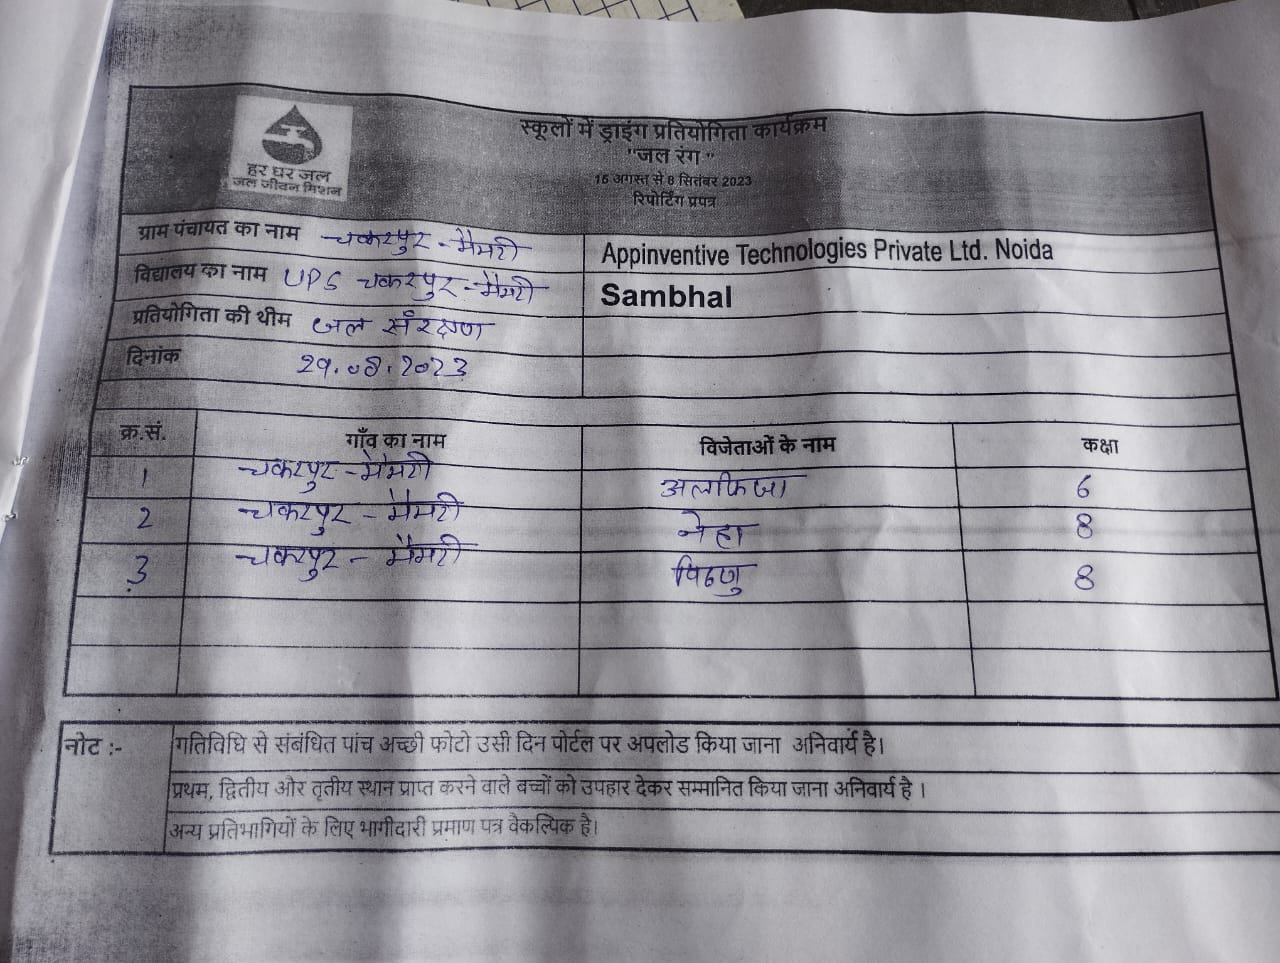 हर घर जल
जल जीवन मिशन
स्कूलों में ड्राइंग प्रतियोगिता कार्यक्रम
"जल रंग "
15 अगस्त से 8 सितंबर 2023
रिपोर्टिंग प्रपत्र
ग्राम पंचायत का नाम चकरपुर-मैमरी Appinventive Technologies Private Ltd. Noida
विद्यालय का नाम UPS चकरपुर-मैमरी Sambhal
प्रतियोगिता की थीम जल संरक्षण
दिनांक 29.08.2023
क्र.सं. गाँव का नाम विजेताओं के नाम कक्षा
1 चकरपुर-मैमरी अलफिजा 6
2 चकरपुर-मैमरी नेहा 8
3 चकरपुर-मैमरी 8
नोट :- गतिविधि से संबंधित पांच अच्छी फोटो उसी दिन पोर्टल पर अपलोड किया जाना अनिवार्य है।
प्रथम, द्वितीय और तृतीय स्थान प्राप्त करने वाले बच्चों को उपहार देकर सम्मानित किया जाना अनिवार्य है ।
अन्य प्रतिभागियों के लिए भागीदारी प्रमाण पत्र वैकल्पिक है।